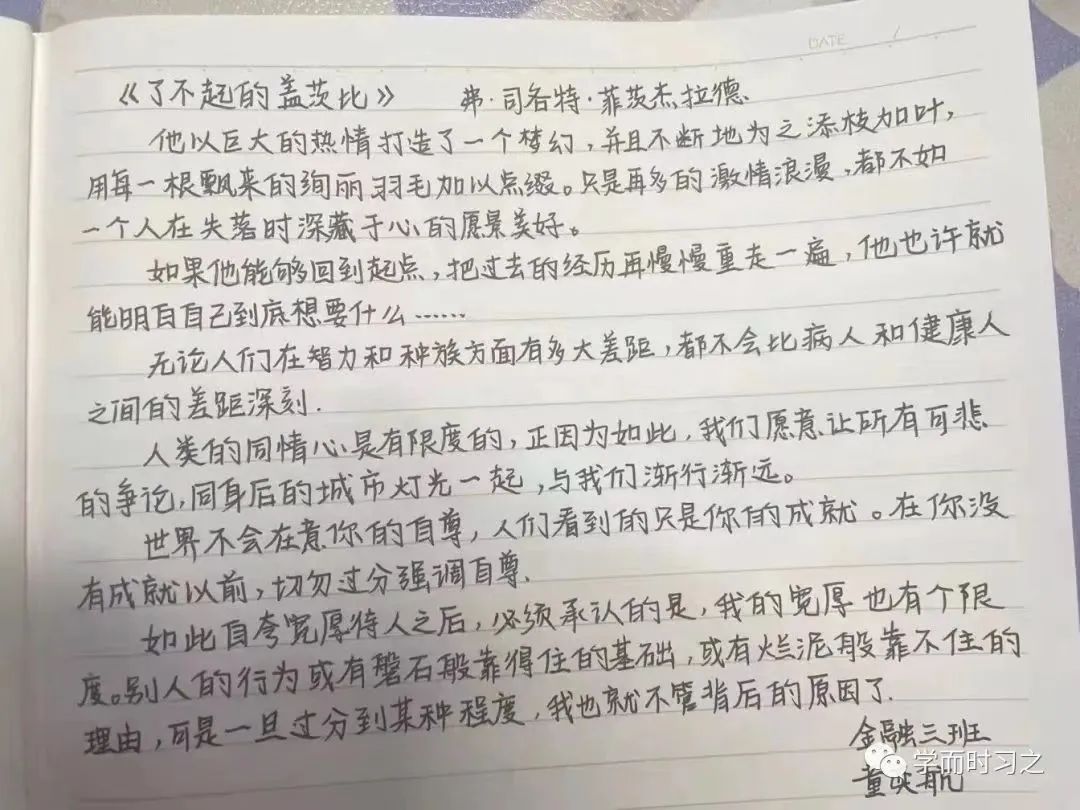 DATE /
《了不起的盖茨比》 弗·司各特·菲茨杰拉德
他以巨大的热情打造了一个梦幻,并且不断地为之添枝加叶,
用每一根飘来的绚丽羽毛加以点缀。只是再多的激情浪漫,都不如
一个人在失落时深藏于心的愿景美好。
如果他能够回到起点,把过去的经历再慢慢重走一遍,他也许就
能明白自己到底想要什么……
无论人们在智力和种族方面有多大差距,都不会比病人和健康人
之间的差距深刻.
人类的同情心是有限度的,正因为如此,我们愿意让所有可悲
的争论,同身后的城市灯光一起,与我们渐行渐远。
世界不会在意你的自尊,人们看到的只是你的成就。在你没
有成就以前,切勿过分强调自尊.
如此自夸宽厚待人之后,必须承认的是,我的宽厚也有个限
度。别人的行为或有磐石般靠得住的基础,或有烂泥般靠不住的
理由,可是一旦过分到某种程度,我也就不管背后的原因了.
金融三班
学而时习之
童 航